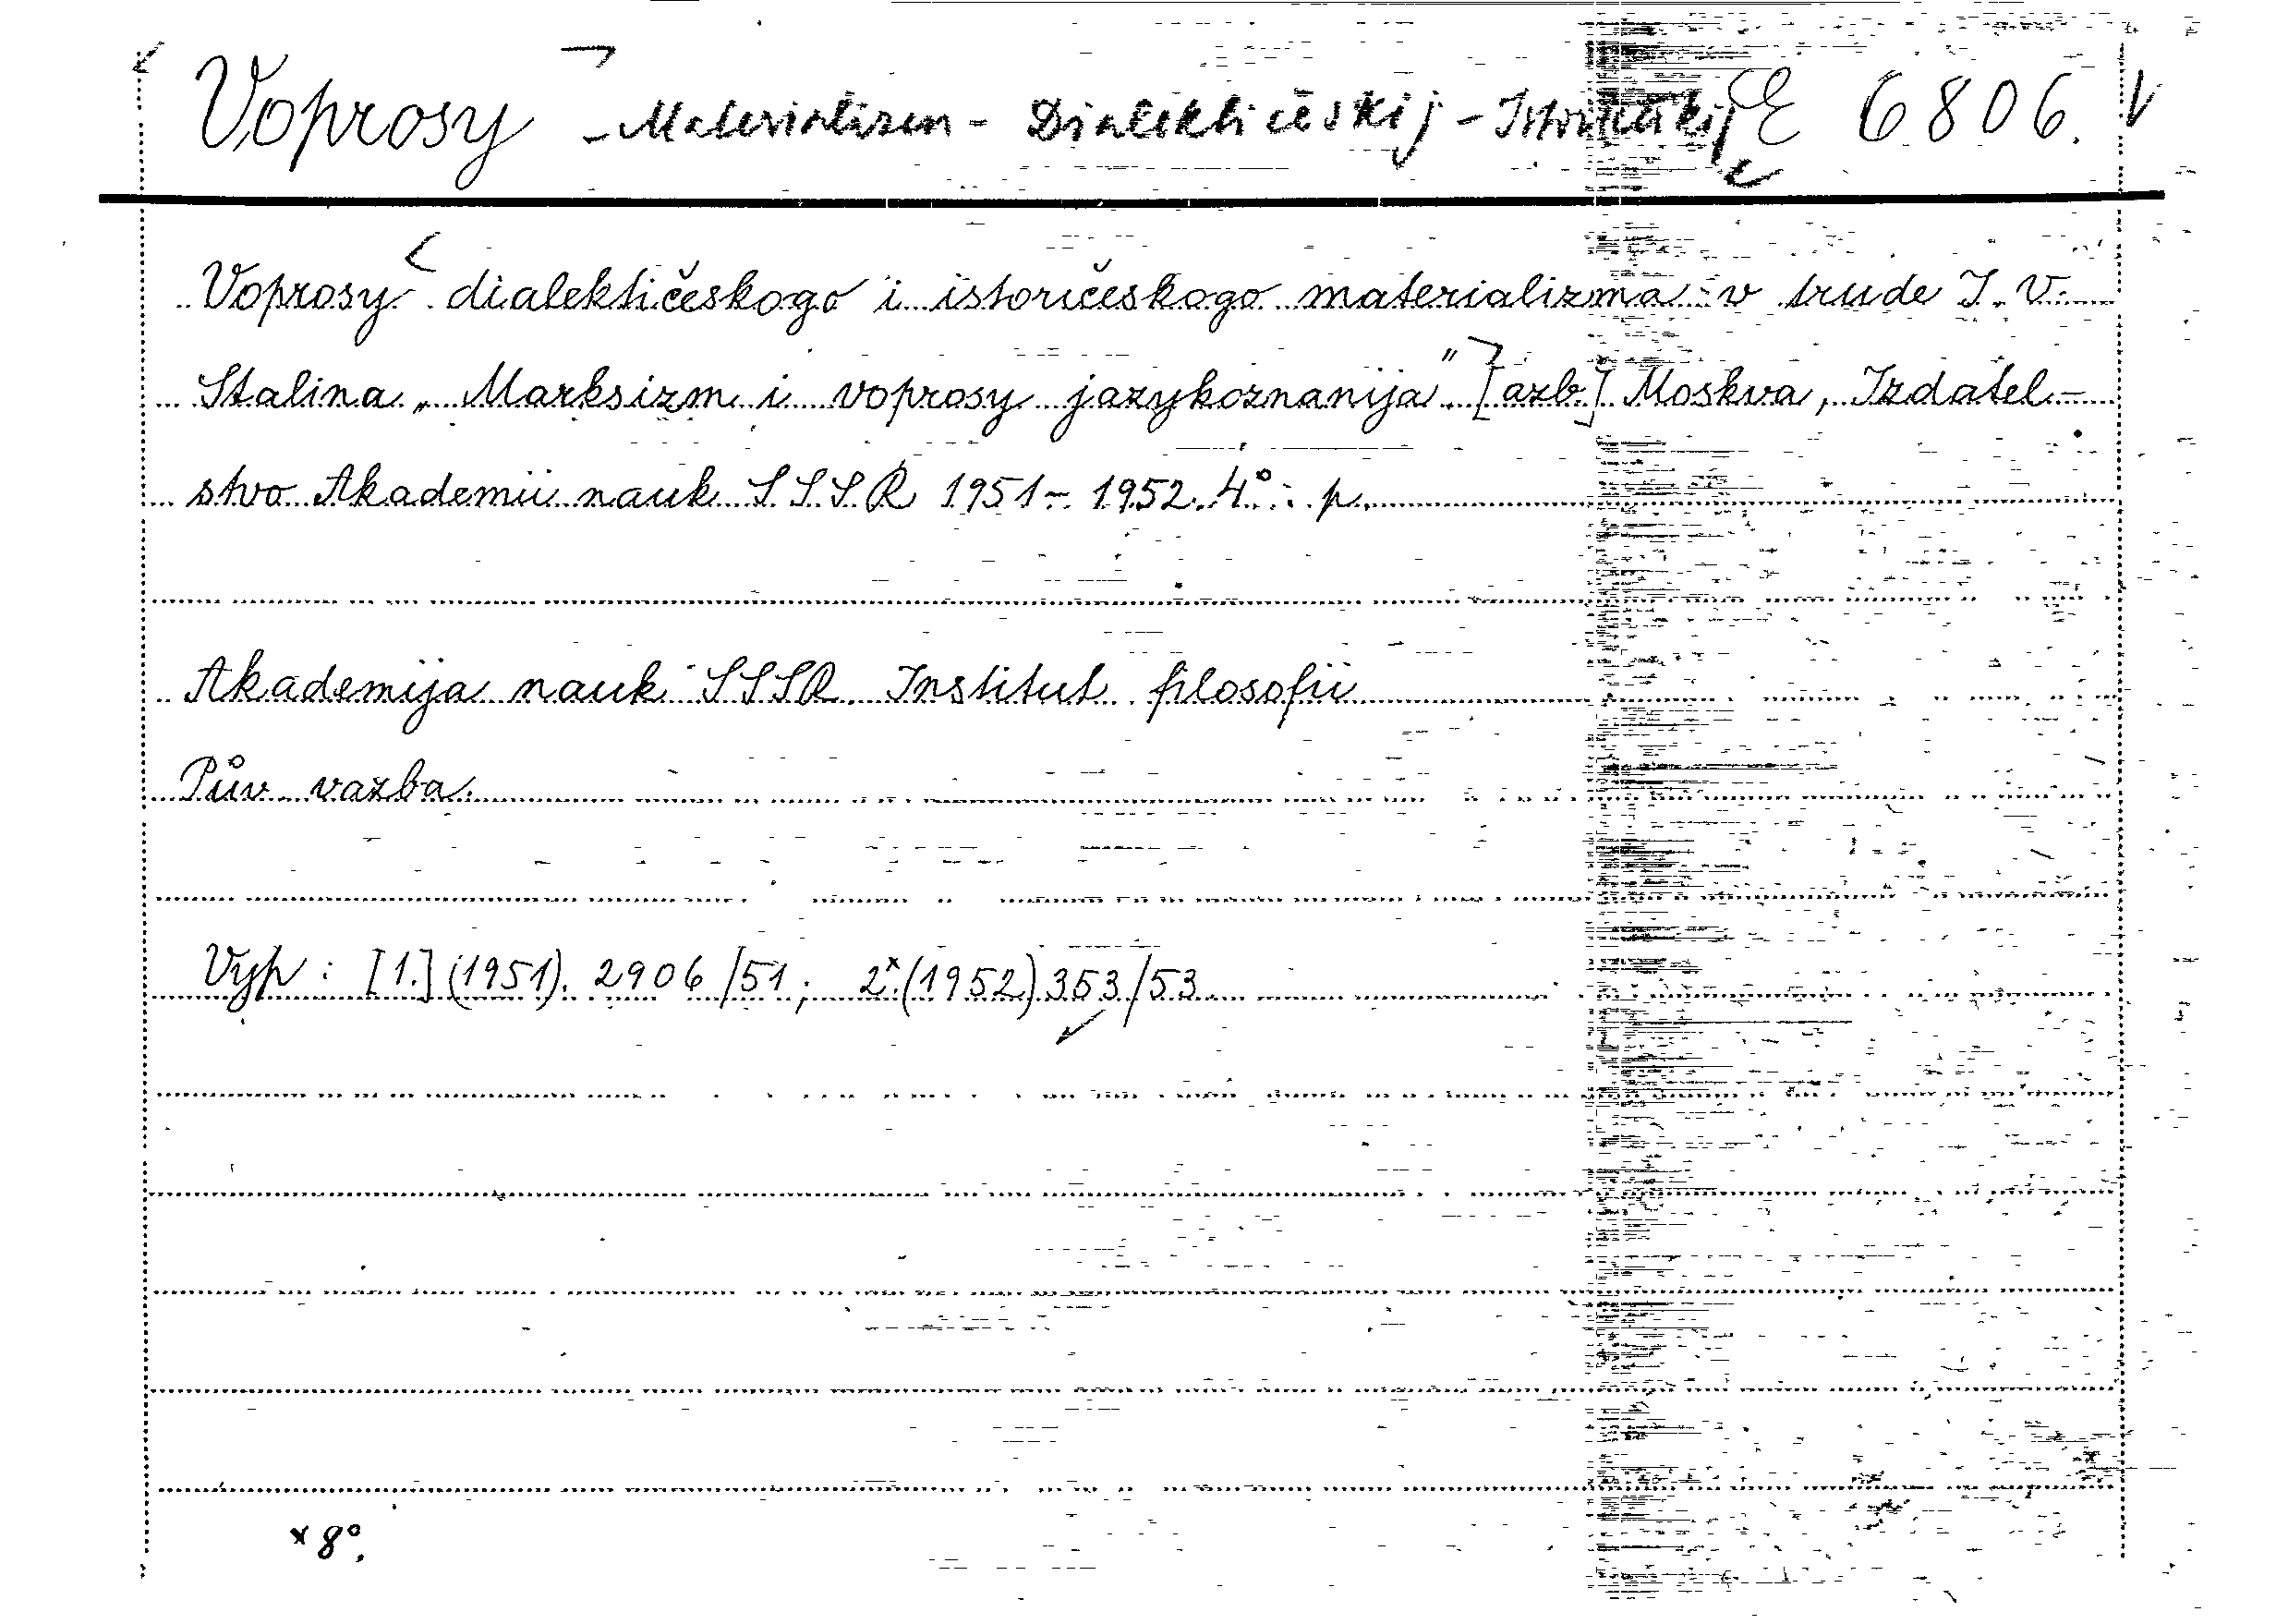 Voprosy - Materializm - Dialektičeskij - Istoričeskij E 6806.
Voprosy dialektičeskogo i istoričeskogo materializma v trude I. V.
Stalina „Marksizm i voprosy jazykoznanija". [azb.] Moskva, Izdatel-
stvo Akademii nauk SSSR 1951 - 1952. 4°. : p.
Akademija nauk SSSR. Institut filosofii
Pův. vazba.
Vyp : [1.] (1951). 2906/51; 2.x (1952) 353/53
x 8°.